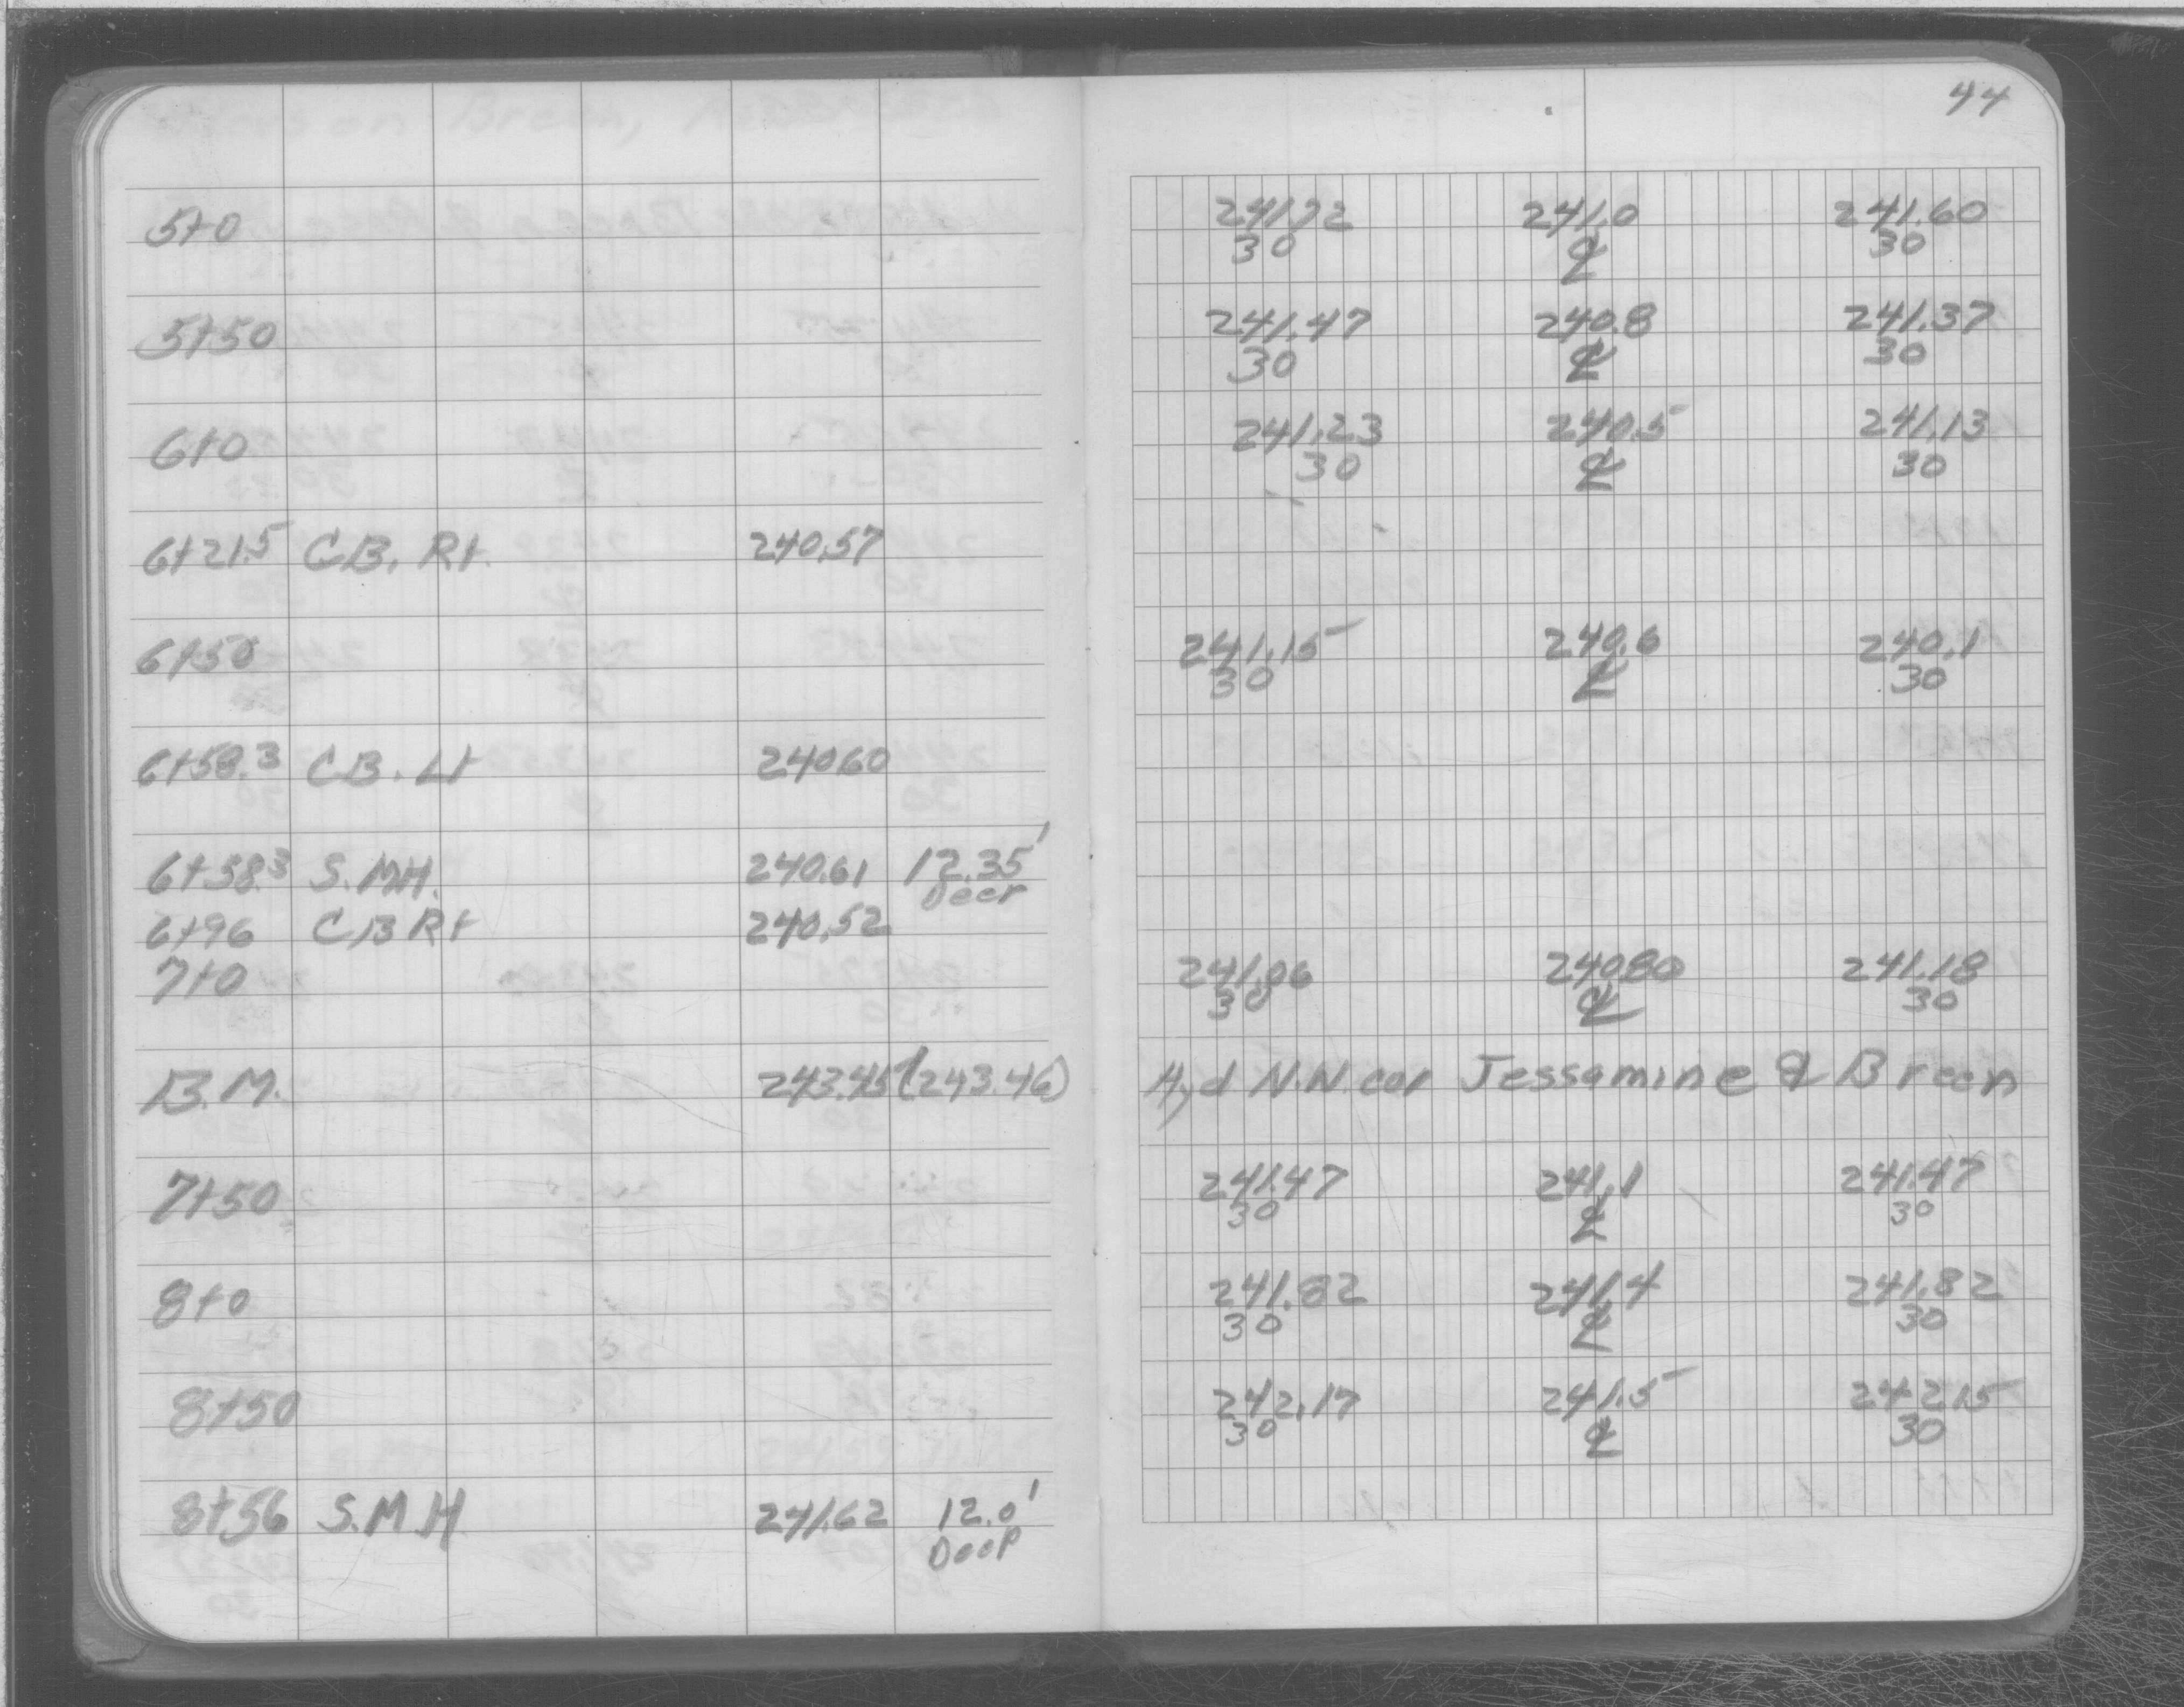 44
5+0 241.72 241.0 241.60
30 ℄ 30
5+50 241.47 240.8 241.37
30 ℄ 30
6+0 241.23 240.5 241.13
30 ℄ 30
6+21.5 C.B. Rt. 240.57
6+50 241.15 240.6 240.1
30 ℄ 30
6+58.3 C.B. Lt 240.60
6+58.3 S.MH. 240.61 12.35'
Deep
6+96 C.B Rt 240.52
7+0 241.06 240.80 241.18
30 ℄ 30
B.M. 243.45 (243.46) Hyd N.W. cor Jessamine & Breen
7+50 241.47 241.1 241.47
30 ℄ 30
8+0 241.82 241.4 241.82
30 ℄ 30
8+50 242.17 241.5 242.15
30 ℄ 30
8+56 S.M.H 241.62 12.0'
Deep